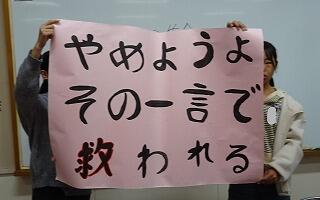 やめようよ
その一言で
救われる